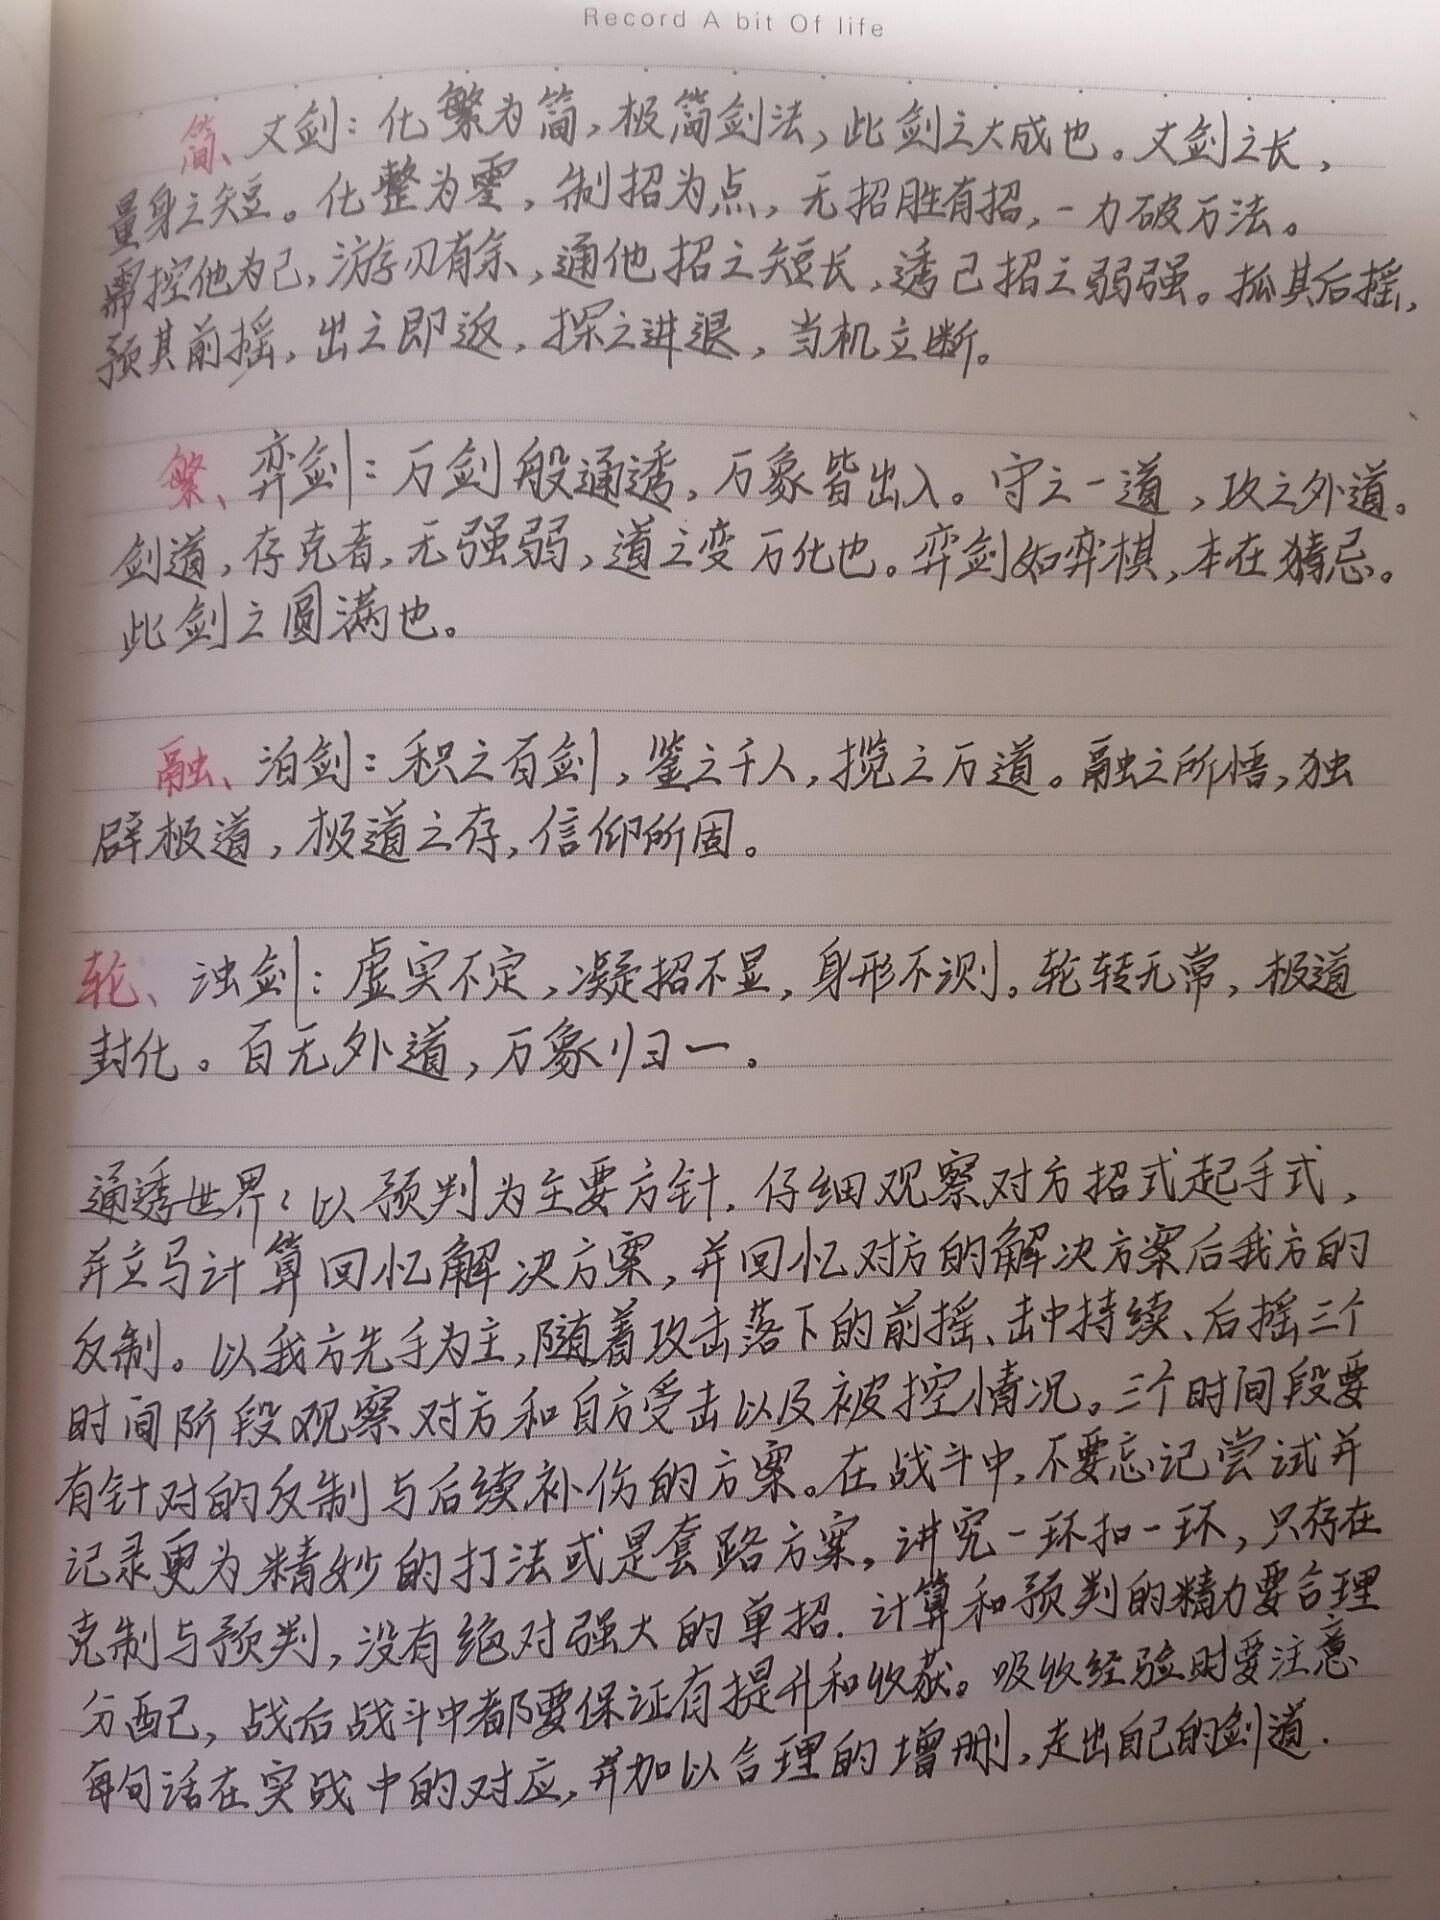 Record A bit Of life
简、丈剑：化繁为简，极简剑法，此剑之大成也。丈剑之长，
量身之短。化整为零，制招为点，无招胜有招，一力破万法。
需控他为己，游刃有余，通他招之短长，透己招之弱强。抓其后摇，
预其前摇，出之即返，探之进退，当机立断。
繁、弈剑：万剑般通透，万象皆出入。守之一道，攻之外道。
剑道，存克者，无强弱，道之变万化也。弈剑如弈棋，本在猜忌。
此剑之圆满也。
融、泊剑：积之百剑，鉴之千人，揽之万道。融之所悟，独
辟极道，极道之存，信仰所固。
轮、浊剑：虚实不定，凝招不显，身形不测。轮转无常，极道
封化。百无外道，万象归一。
通透世界：以预判为主要方针，仔细观察对方招式起手式，
并立马计算回忆解决方案，并回忆对方的解决方案后我方的
反制。以我方先手为主，随着攻击落下的前摇、击中持续、后摇三个
时间阶段观察对方和自方受击以及被控情况。三个时间段要
有针对的反制与后续补伤的方案。在战斗中，不要忘记尝试并
记录更为精妙的打法或是套路方案，讲究一环扣一环，只存在
克制与预判，没有绝对强大的单招．计算和预判的精力要合理
分配，战后战斗中都要保证有提升和收获。吸收经验时要注意
每句话在实战中的对应，并加以合理的增删，走出自己的剑道．